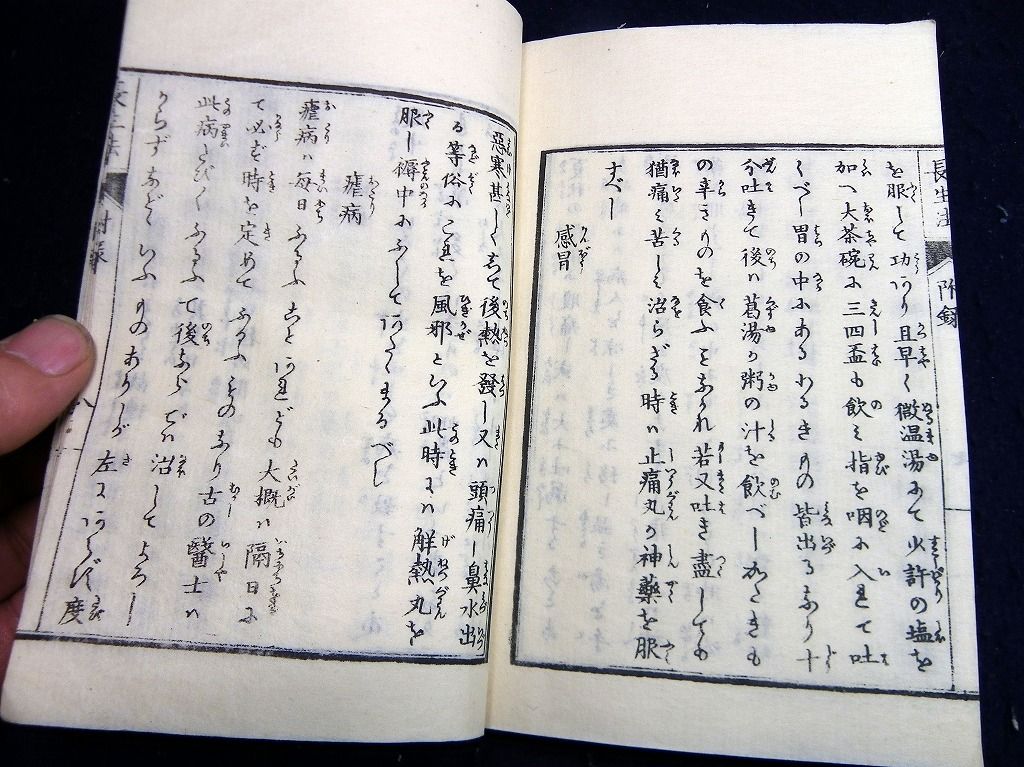 長生法 附録
を服して功あり且早く微温湯にて少許の塩を
加へ大茶碗に三四盃も飲み指を咽に入れて吐
くべし胃の中にあるわるきもの皆出るなり十
分吐きて後は葛湯か粥の汁を飲べしかたきも
の辛きものを食ふことなかれ若又吐き盡しても
猶痛み苦しみ治らざる時は止痛丸の神藥を服
すべし
感冒
惡寒甚しくして後熱を發し又は頭痛し鼻水出
る等俗にこれを風邪といふ此時には解熱丸を
服し褥中にふしてあたたまるべし
瘧病
瘧病は毎日ふるふことあれども大概は隔日に
て必ず時を定めてふるふものなり古の醫士は
此病たびたびふるふて後ならでは治してよろし
からずなどいふものありしが左にあらず度
長生法 附録 八